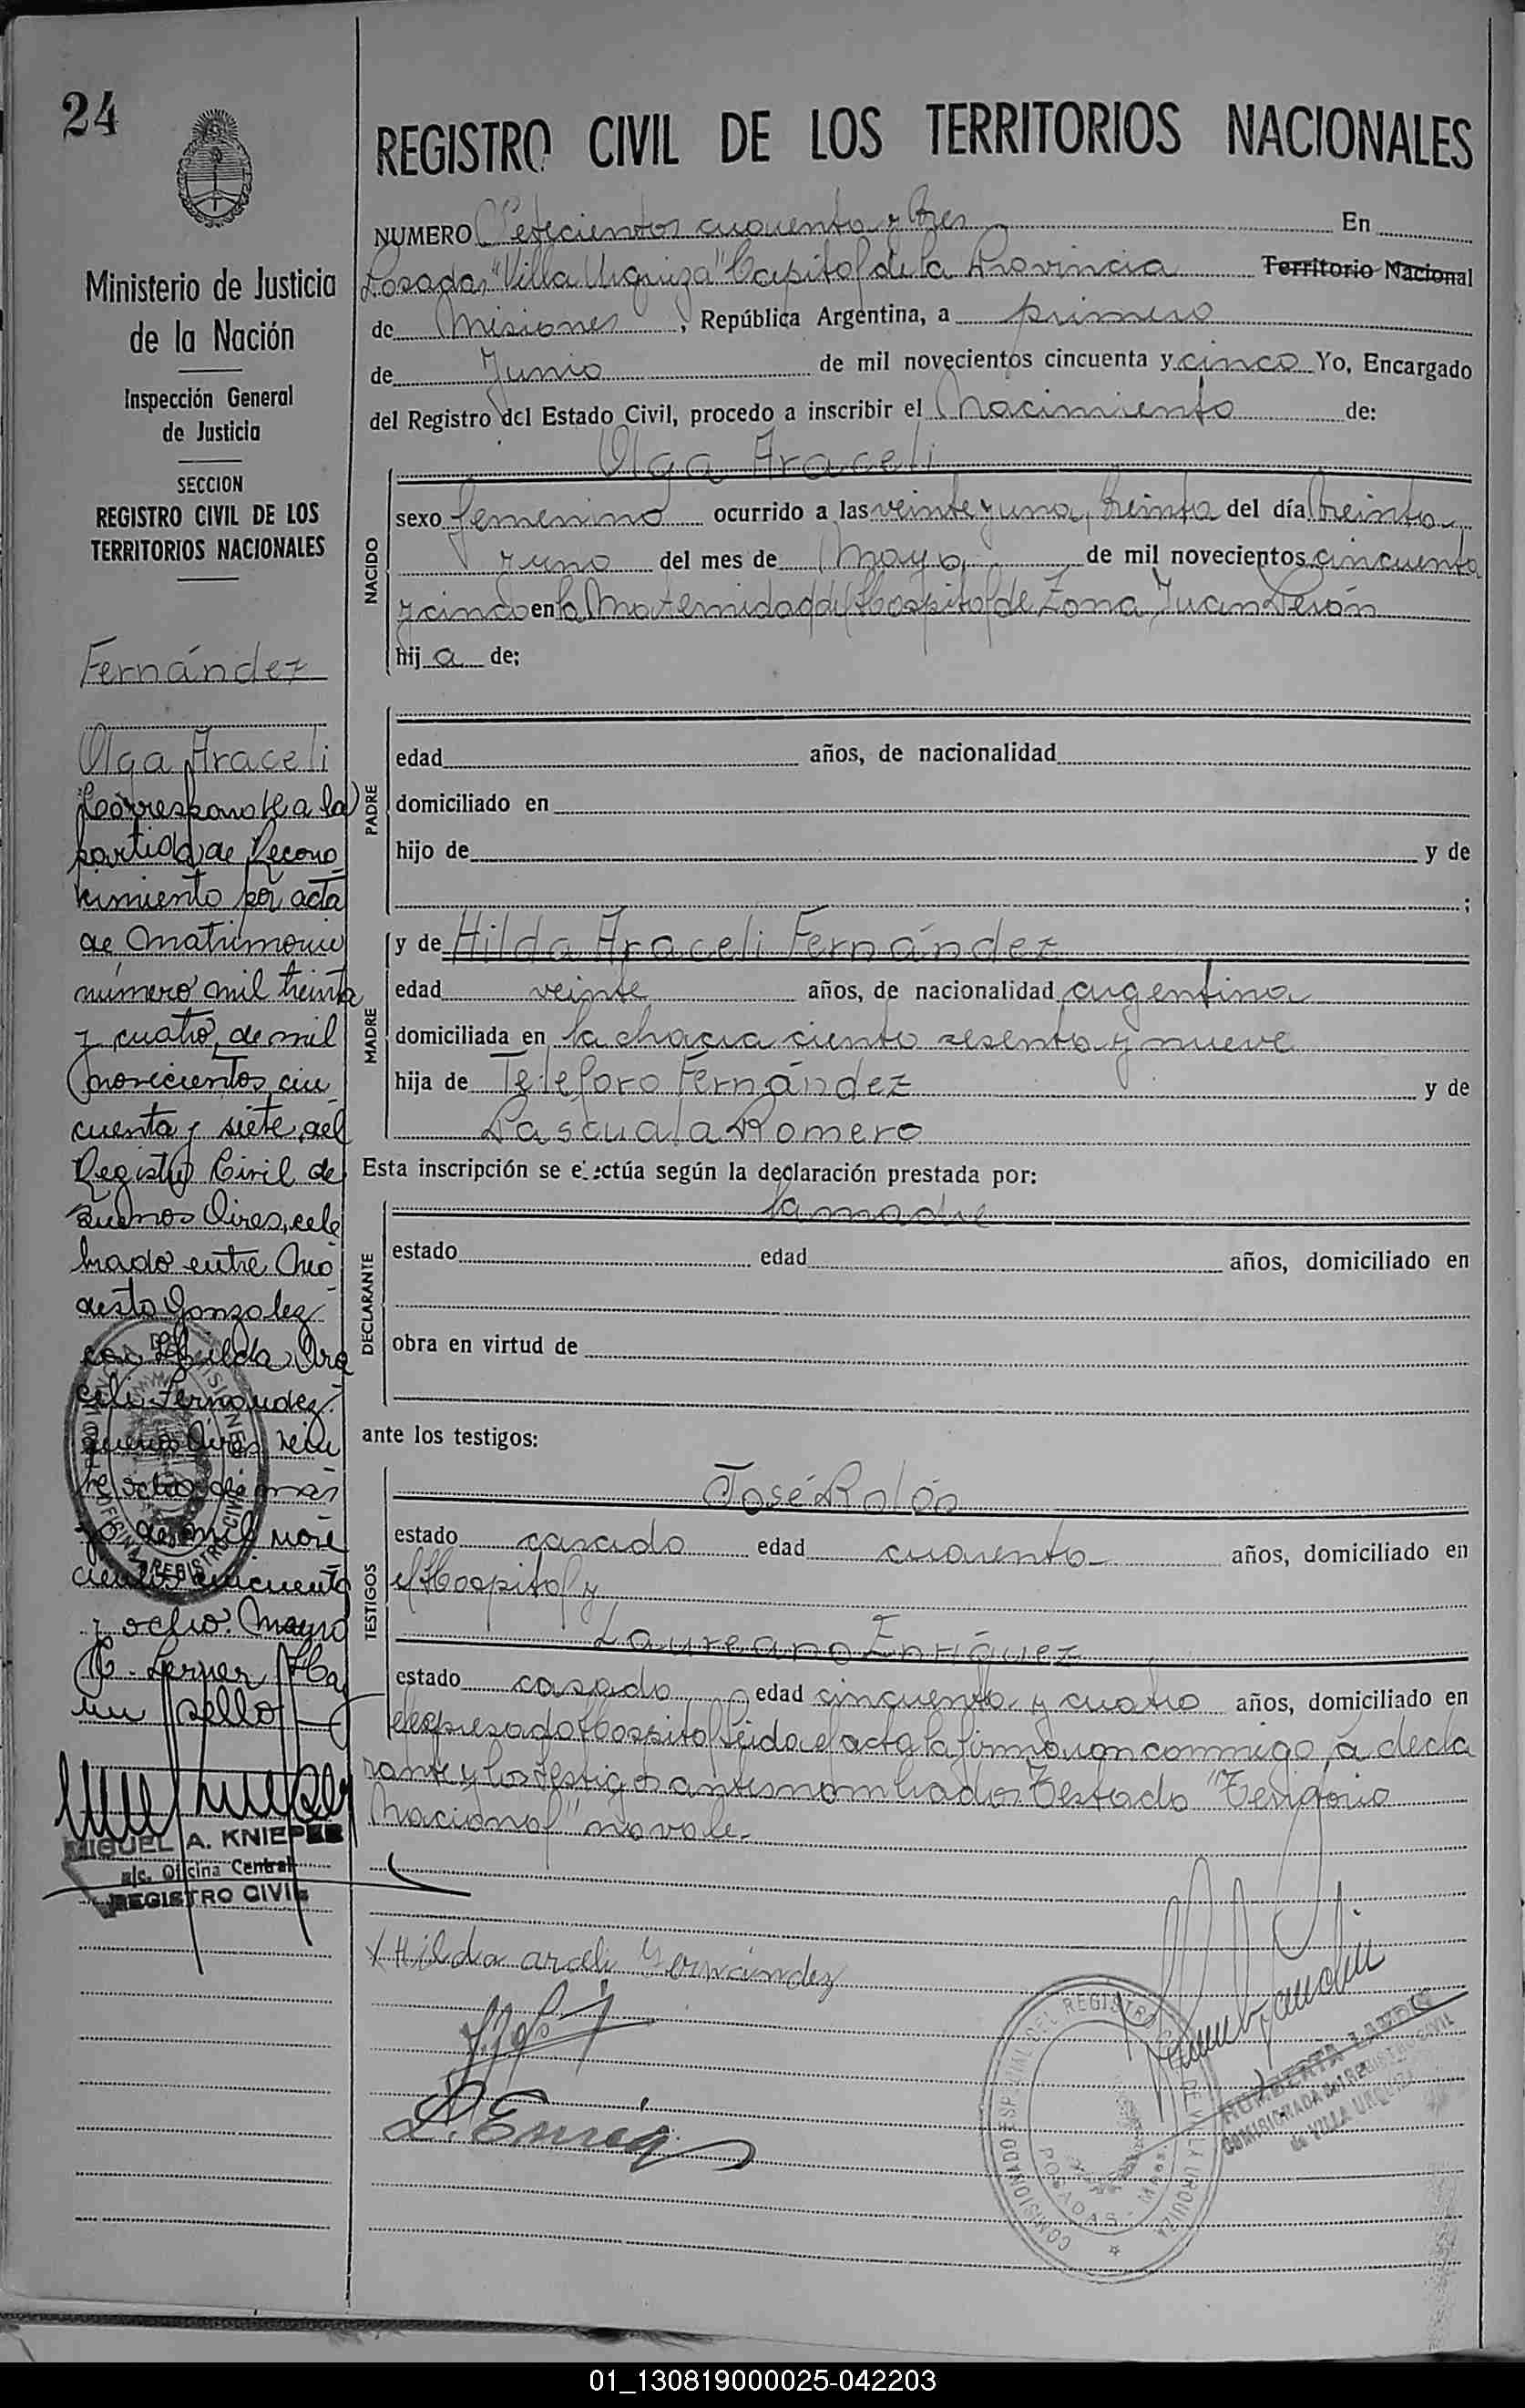 24
REGISTRO CIVIL DE LOS TERRITORIOS NACIONALES
Ministerio de Justicia
de la Nación
Inspección General
de Justicia
SECCION
REGISTRO CIVIL DE LOS
TERRITORIOS NACIONALES
Fernández
Olga Araceli
Corresponde a la
partida de Recono
cimiento por acta
de Matrimonio
número mil treinta
y cuatro, de mil
novecientos cin
cuenta y siete, del
Registro Civil de
Buenos Aires, cele
brado entre Mo
desto Gonzalez
con Hilda Ara
celi Fernandez.
Buenos Aires vein
te ocho de mar
zo de mil nove
cientos cincuenta
y ocho. Mayra
Lerner Ha
un sello
MIGUEL A. KNIEPER
a/c. Oficina Central
REGISTRO CIVIL
NUMERO Setecientos cuarenta y tres En
Posadas "Villa Urquiza" Capital de la Provincia Territorio Nacional
de Misiones, República Argentina, a primero
de Junio de mil novecientos cincuenta y cinco Yo, Encargado
del Registro del Estado Civil, procedo a inscribir el Nacimiento de:
NACIDO
Olga Araceli
sexo femenino ocurrido a las veinte y una, treinta del día treinta
y uno del mes de Mayo de mil novecientos cincuenta
y cinco en la Maternidad del Hospital de Zona Juan Perón
hij a de:
PADRE
edad años, de nacionalidad
domiciliado en
hijo de y de
;
MADRE
y de Hilda Araceli Fernández
edad veinte años, de nacionalidad argentina
domiciliada en la chacra ciento sesenta y nueve
hija de Teleforo Fernández y de
Pascuala Romero
Esta inscripción se efectúa según la declaración prestada por:
DECLARANTE
la madre
estado edad años, domiciliado en
obra en virtud de
ante los testigos:
TESTIGOS
José Rolón
estado casado edad cuarenta años, domiciliado en
el Hospital y
Laureano Enríquez
estado casado edad cincuenta y cuatro años, domiciliado en
el expresado Hospital Leida el acta la firmaron conmigo, la decla
rante y los testigos antes nombrados Testado "Territorio
Nacional" no vale.
Hilda arceli Fernández
L. Enriq
COMISIONADO ESPECIAL DEL REGISTRO CIVIL
VILLA URQUIZA
POSADAS - Mnes.
COMISIONADA del REGISTRO CIVIL
de VILLA URQUIZA
01_130819000025-042203